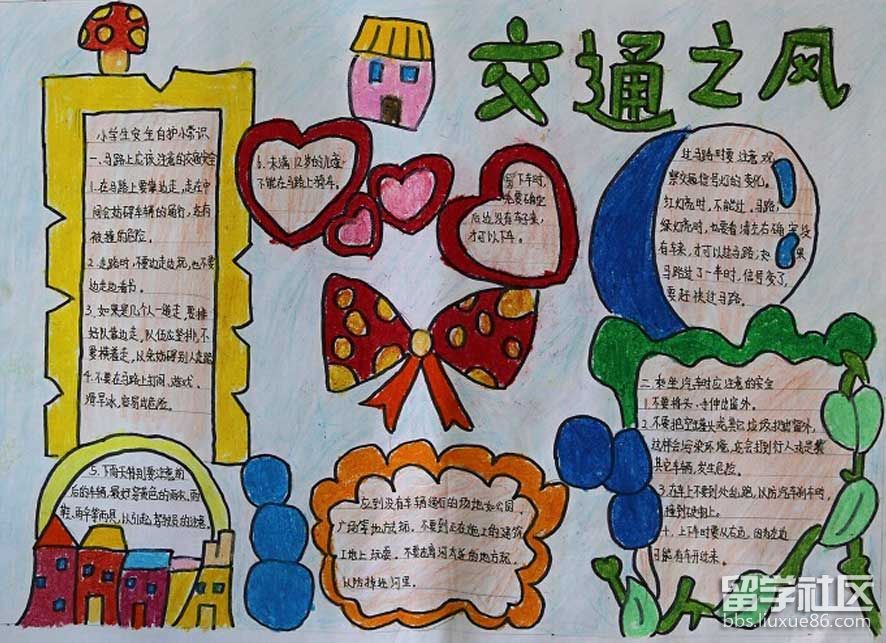 交通之风
小学生安全自护小常识
一、马路上应该注意的交通安全
1.在马路上要靠边走,走在中
间会妨碍车辆的通行,还有
被撞的危险。
2.走路时,不要边走边玩,也不要
边走边看书。
3.如果是几个人一道走,要排
好队靠边走,队伍应坚排,不
要横着走,以免妨碍别人走路
4.不要在马路上打闹、游戏、
滑旱冰,容易出危险。
5.下雨天特别要注意前
后的车辆,最好穿黄色的雨衣、雨
鞋、雨伞等雨具,以引起驾驶员的注意。
6.未满12岁的儿童
不能在马路上骑车。
下车时,
要确定
后边没有车子来,
才可以下车。
过马路时要注意观
察交通信号灯的变化。
红灯亮时,不能过马路,
绿灯亮时,也要看清左右确实没
有车来,才可以过马路;如果
马路过了一半时,信号变了,
要赶快过马路。
应到没有车辆通行的场地如公园、
广场等地方去玩,不要到正在施工的建筑
工地上玩耍,不要在离河太近的地方玩,
以防掉进河里。
二、乘坐汽车时应注意的安全
1.不要将头、手伸出窗外。
2.不要把空罐头或其它垃圾扔出窗外,
这样会污染环境,还会打到行人或是
其它车辆,发生危险。
3.在车上不要到处乱跑,以防汽车刹车时,
撞到硬物上。
4、上下车时要从右边,因为左边
可能有车开过来。
留学社区
bbs.liuxue86.com